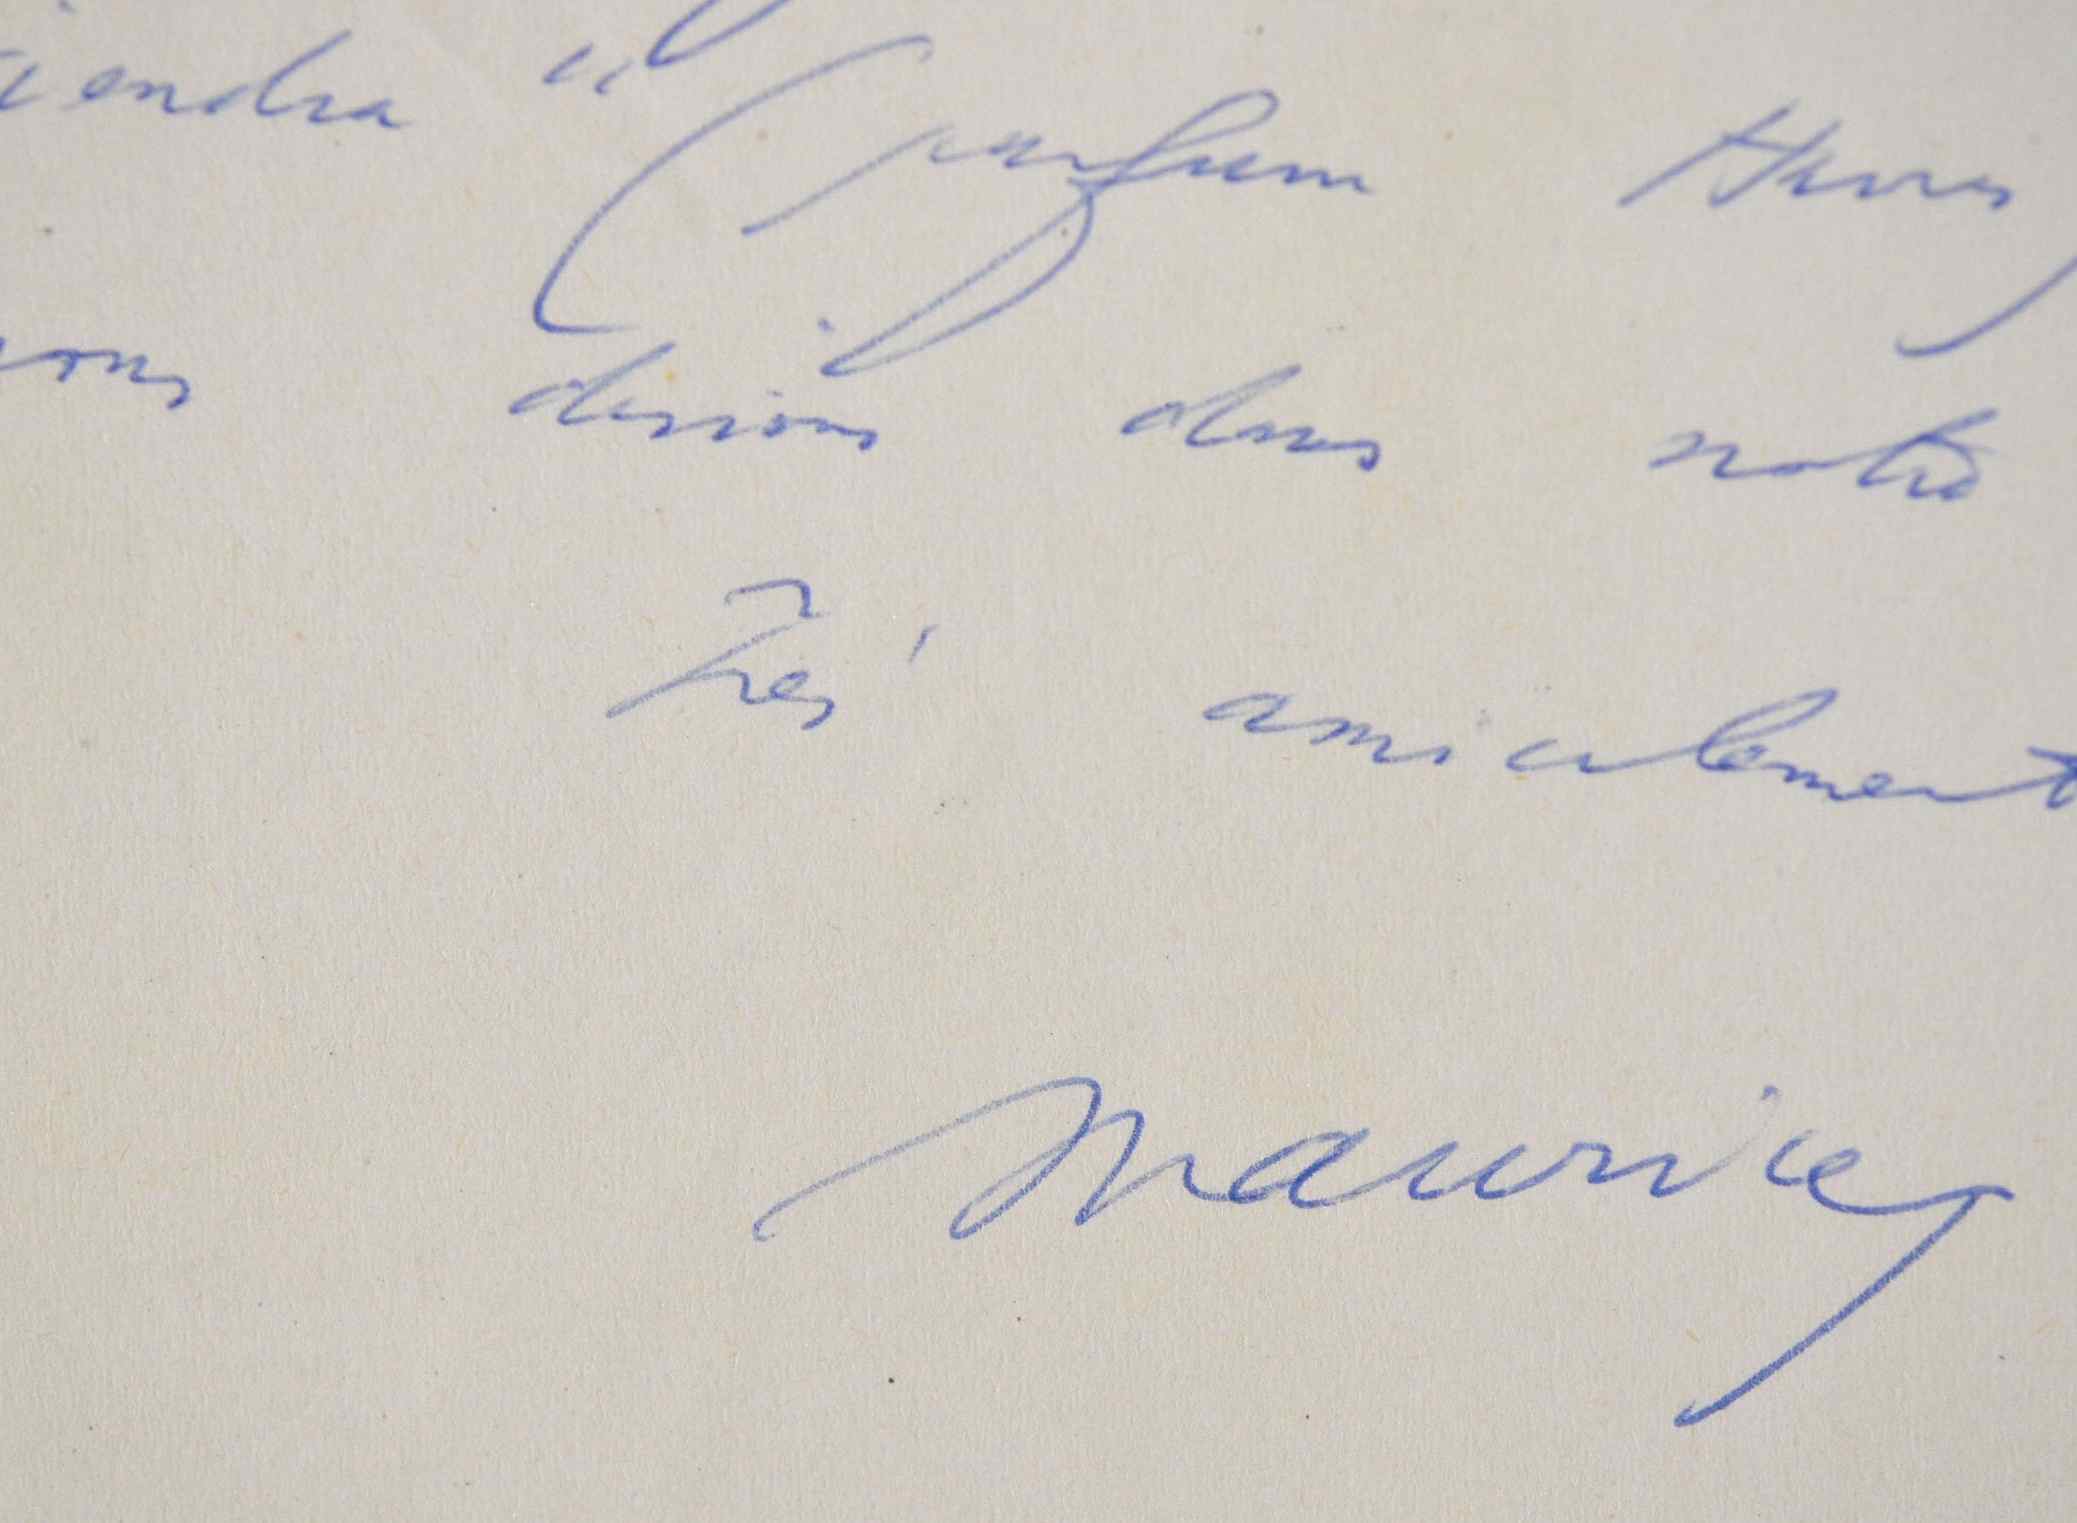 iendra u parfum
ons disions dans notre
Très amicalement
Maurice